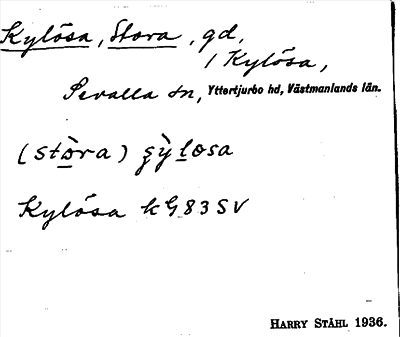 Kylösa, Stora, gd,
i Kylösa,
Sevalla sn, Yttertjurbo hd, Västmanlands län.
Kylösa kG 83 SV
HARRY STÅHL 1936.